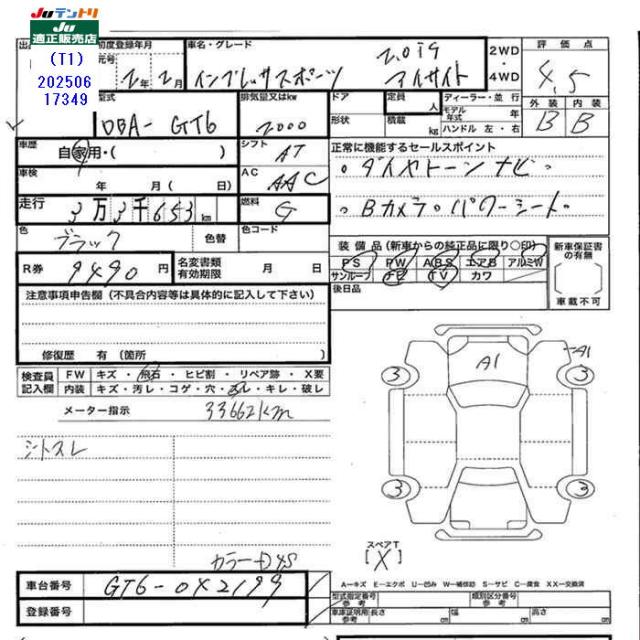 JUテントリ
JU
適正販売店
(T1)
202506
17349
初度登録年月 車名・グレード 2WD・4WD 評価点
2年2月 インプレッサスポーツ 2.0i-S アイサイト 4.5
型式 排気量又はkw ドア 形状 定員 人 積載 kg ディーラー・並行 モデル年式 年 ハンドル 左・右 外装 内装
DBA- GT6 2000 B B
車歴 自家用・( ) シフト AT 正常に機能するセールスポイント
車検 年 月(日) AC AAC ・ダイヤトーンナビ
走行 3万3千653km 燃料 G ・Bカメラ・パワーシート
色 ブラック 色替 色コード
装備品(新車からの純正品に限り○印) 新車保証書の有無
R券 9490円 名変書類有効期限 月 日
PS PW ABS エアB アルミW
サンルーフ TV カワ
( )
車載不可
後日品
注意事項申告欄(不具合内容等は具体的に記入して下さい)
修復歴 有(箇所 )
検査員記入欄 FW キズ・飛石・ヒビ割・リペア跡・X要
内装 キズ・汚レ・コゲ・穴・スレ・キレ・破レ
メーター指示 33662km
シートスレ
A1 A1
3 3
3 3
スペアT
[X]
カラーD4S
車台番号 GT6-042199
登録番号
A-キズ E-エクボ U-凹み W-補修跡 S-サビ C-腐食 XX-交換済
型式指定番号 参考 類別区分番号 参考
車庫証明用参考 長さ cm 幅 cm 高さ cm